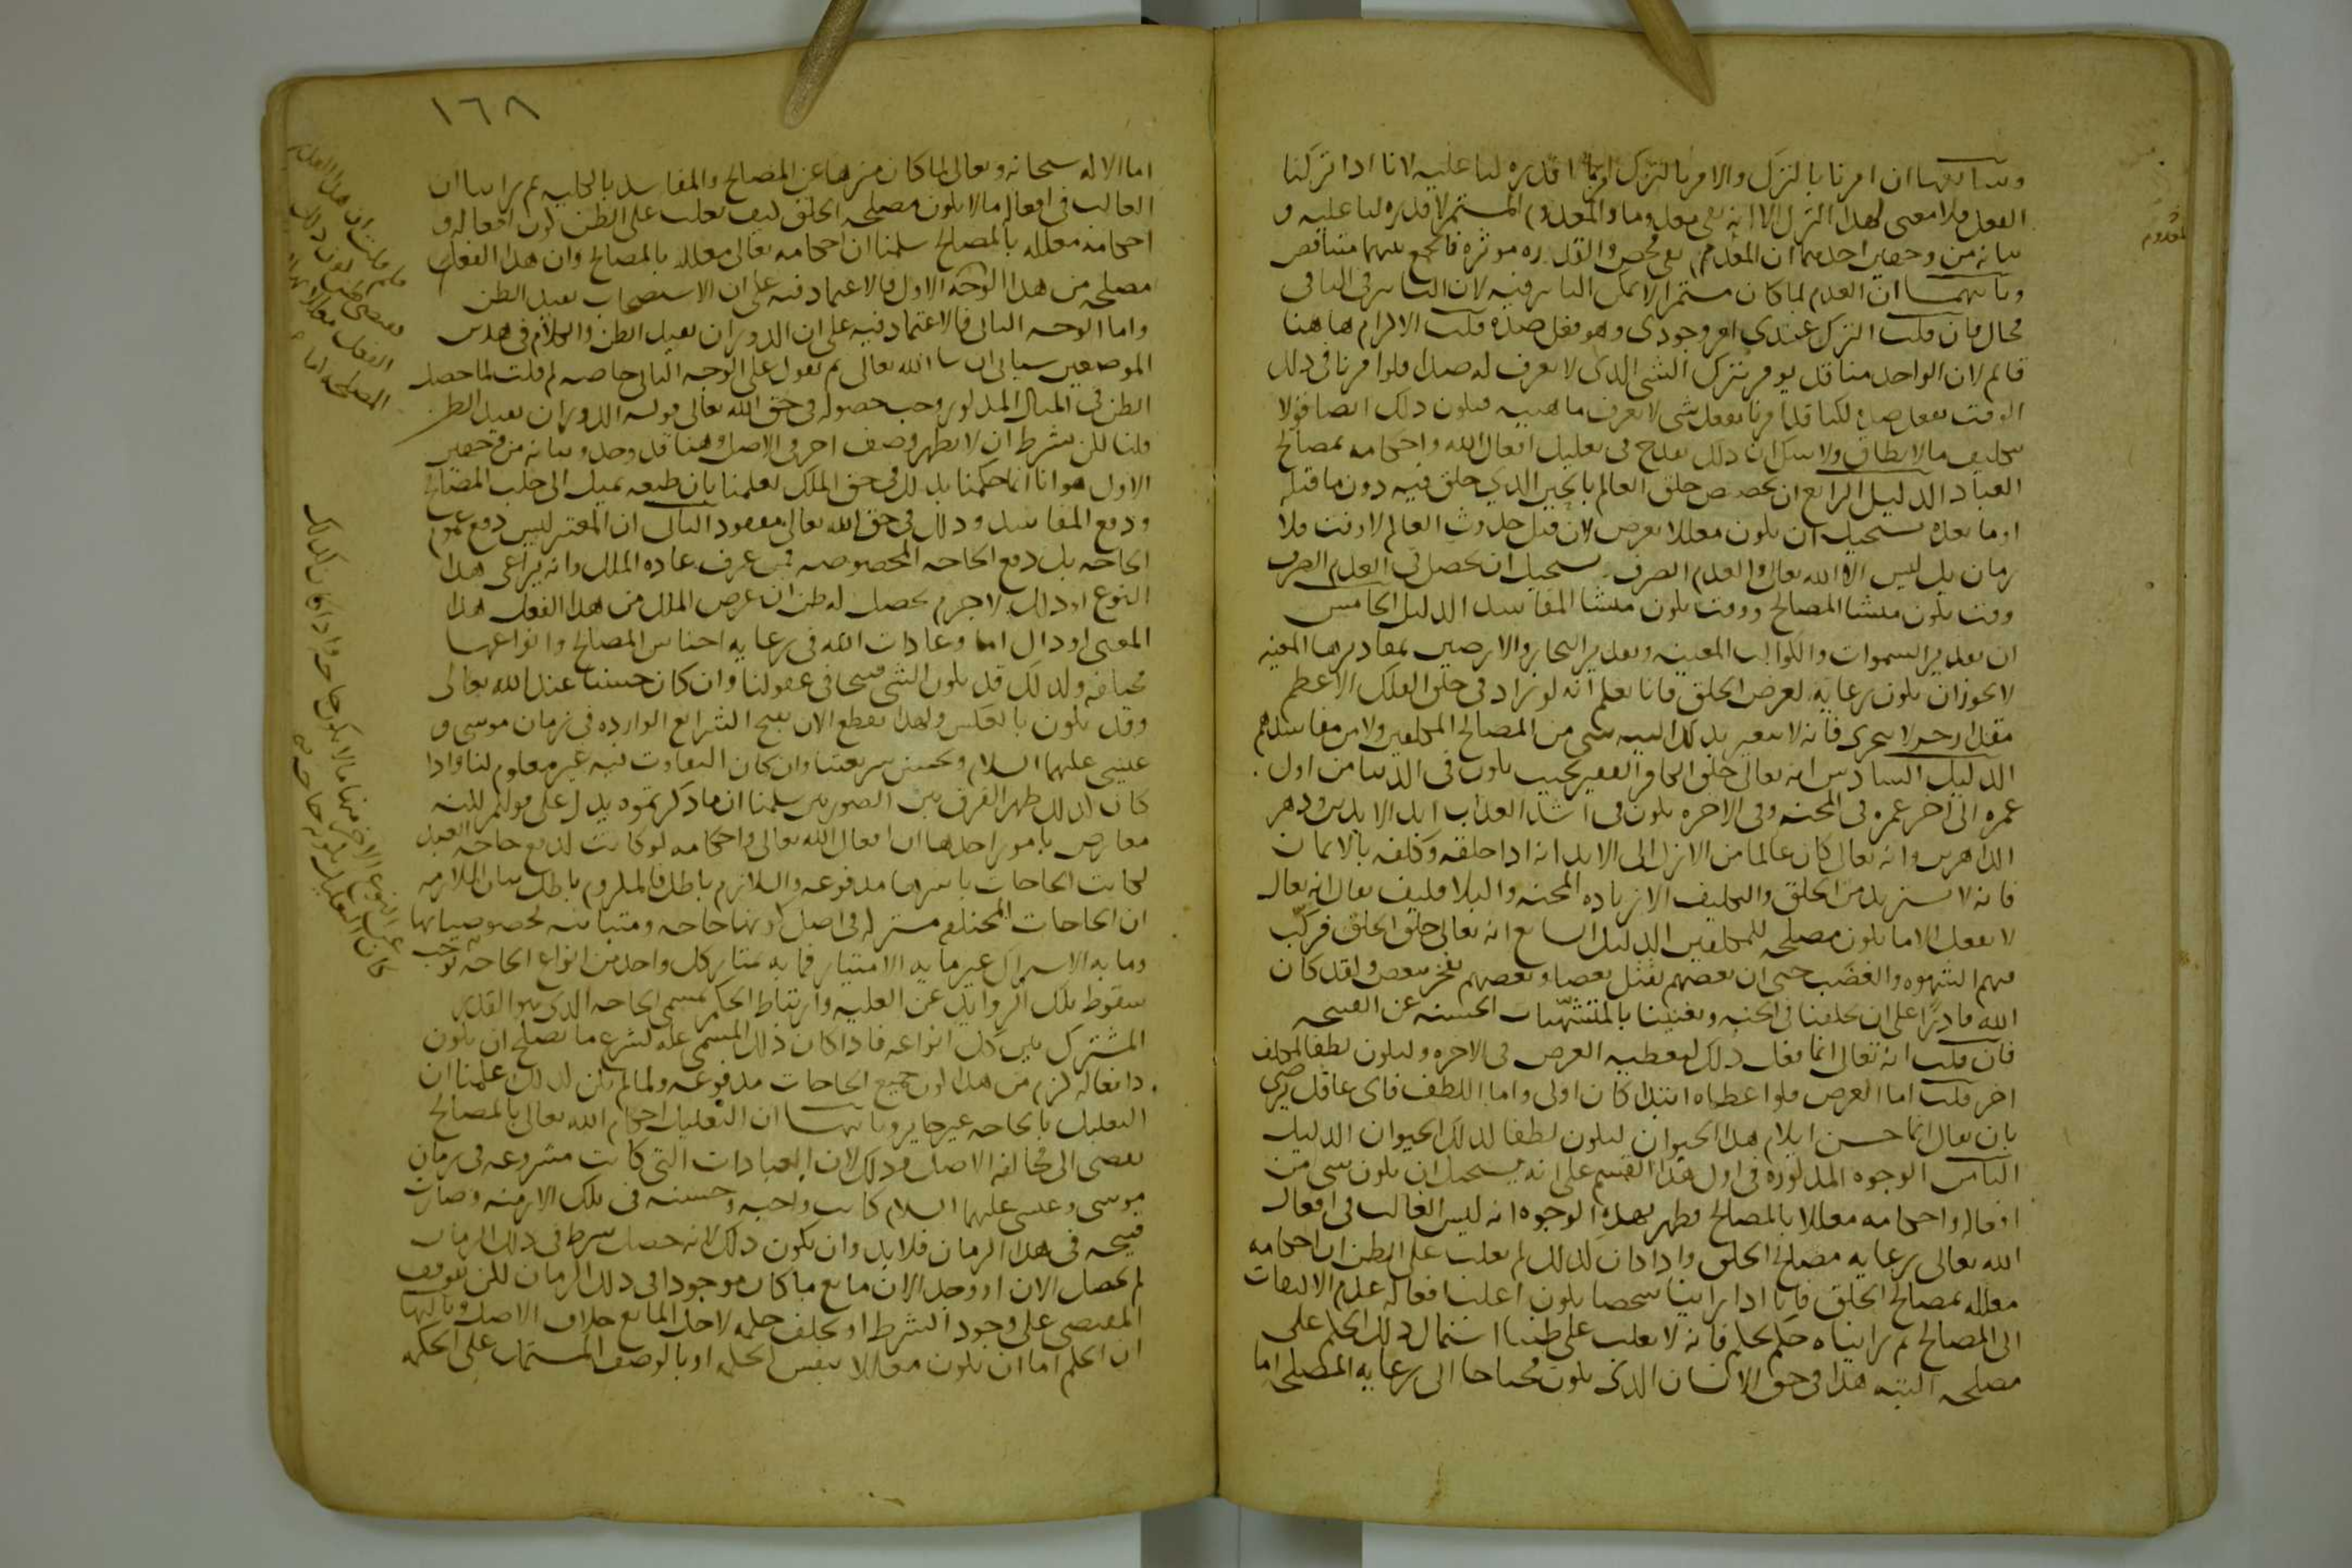 وسابعها ان امرنا بالترك والامر بالترك امر بما لا قدره لنا عليه لانا اذا تركنا
الفعل فلا معنى لهذا الترك الا انه بقى معدوما والمعدوم المستمر لا قدره لنا عليه و
بيانه من وجهين احدهما ان العدم نفى محض والقدره موثره فالجمع بينهما متناقض
وثانيهما ان العدم لما كان مستمرا لا يمكن التاثير فيه لان التاثير فى الباقى
محال فان قلت الترك عندى امر وجودى وهو فعل ضده قلت الالزام هاهنا
قائم لان الواحد منا قد يومر بترك الشى الذى لا يعرف له ضدا فلو امرنا فى ذلك
الوقت بفعل ضده لكنا قد امرنا بفعل شى لا يعرف ماهيته فيكون ذلك ايضا قولا
بتكليف ما لا يطاق ولا شك ان ذلك يقدح فى تعليل افعال الله واحكامه بمصالح
العباد الدليل الرابع ان تخصيص خلق العالم بالحين الذى خلق فيه دون ما قبله
او ما بعده يستحيل ان يكون معللا بغرض لان قبل حدوث العالم لا وقت فلا
زمان بل ليس الا الله تعالى والعدم الصرف ويستحيل ان يحصل فى العدم الصرف
وقت يكون منشا المصالح ووقت يكون منشا المفاسد الدليل الخامس
ان تقدير السموات والكواكب المعينه وتقدير البحار والارضين بمقاديرها المعينه
لا يجوز ان يكون رعايه لغرض الخلق فانا نعلم انه لو زاد فى خلق الفلك الاعظم
مقدار جزو لا يتجزى فانه لا يتغير بذلك البته شى من المصالح المكلفين ولا من مفاسدهم
الدليل السادس انه تعالى خلق الكافر الفقير بحيث يكون فى الدنيا من اول
عمره الى اخر عمره فى المحنه وفى الاخره يكون فى اشد العذاب ابد الابدين ودهر
الداهرين وانه تعالى كان عالما من الازل الى الابد انه اذا خلقه وكلفه بالايمان
فانه لا يستزيد من الخلق والتكليف الا زياده المحنه والبلا فكيف يقال انه تعالى
لا يفعل الا ما يكون مصلحه للمكلفين الدليل السابع انه تعالى خلق الخلق فركب
فيهم الشهوه والغضب حتى ان بعضهم يقتل بعضا وبعضهم يفجر ببعض ولقد كان
الله قادرا على ان يخلقنا فى الجنه ويغنينا بالمشتهيات الحسنه عن القبيحه
فان قلت انه تعالى انما فعل ذلك ليعطيه العوض فى الاخره وليكون لطفا لمكلف
اخر قلت اما العوض فلو اعطاه ابتدا كان اولى واما اللطف فاى عاقل يرضى
بان يقال انما حسن ايلام هذا الحيوان ليكون لطفا لذلك الحيوان الدليل
الثامن الوجوه المذكوره فى اول هذا القسم على انه يستحيل ان يكون شى من
افعاله واحكامه معللا بالمصالح فظهر بهذه الوجوه انه ليس الغالب فى افعال
الله تعالى رعايه مصالح الخلق واذا كان كذلك لم يغلب على الظن ان احكامه
معلله بمصالح الخلق فانا اذا راينا شخصا يكون اغلب افعاله عدم الالتفات
الى المصالح ثم رايناه حكم بحكم فانه لا يغلب على ظننا اشتمال ذلك الحكم على
مصلحه البته هذا فى حق الانسان الذى يكون محتاجا الى رعايه المصلحه اما
المعدوم
١٦٨
اما الاله سبحانه وتعالى لما كان منزها عن المصالح والمفاسد بالكليه ثم راينا ان
الغالب فى افعاله ما لا يكون مصلحه الخلق كيف يغلب على الظن كون افعاله و
احكامه معلله بالمصالح سلمنا ان احكامه تعالى معلله بالمصالح وان هذا الفعل
مصلحه من هذا الوجه الاول فالاعتماد فيه على ان الاستصحاب يفيد الظن
واما الوجه الثانى فالاعتماد فيه على ان الدوران يفيد الظن والكلام فى هذين
الموضعين سياتى ان شا الله تعالى ثم نقول على الوجه الثانى خاصه لم قلت لما حصل
الظن فى المثال المذكور وجب حصوله فى حق الله تعالى قوله الدوران يفيد الظن
قلنا لكن بشرط ان لا يظهر وصف اخر فى الاصل وهنا قد وجد وبيانه من وجهين
الاول هو انا انما حكمنا بذلك فى حق الملك لعلمنا بان طبعه يميل الى جلب المصالح
ودفع المفاسد وذلك فى حق الله تعالى مفقود الثانى ان المعتبر ليس دفع عموم
الحاجه بل دفع الحاجه المخصوصه فمن عرف عاده الملك وانه يراعى هذا
النوع او ذلك لا جرم يحصل له ظن ان غرض الملك من هذا الفعل هذا
المعنى او ذاك اما وعادات الله فى رعايه اجناس المصالح وانواعها
مختلفه ولذلك قد يكون الشى قبيحا فى عقولنا وان كان حسنا عند الله تعالى
وقد يكون بالعكس ولهذا نقطع الان بقبح الشرايع الوارده فى زمان موسى و
عيسى عليهما السلام وبحسن شريعتنا وان كان التفاوت فيه غير معلوم لنا واذا
كان كذلك ظهر الفرق بين الصورتين سلمنا ان ما ذكرتموه يدل على قولكم لكنه
معارض بامور احدها ان افعال الله تعالى واحكامه لو كانت لدفع حاجه العبد
لكانت الحاجات باسرها مدفوعه واللازم باطل فالملزوم باطل بيان الملازمه
ان الحاجات المختلفه مشتركه فى اصل كونها حاجه ومتباينه بخصوصياتها
وما به الاشتراك غير ما به الامتياز فما به يمتاز كل واحد من انواع الحاجه يوجب
سقوط تلك الزوايد عن العليه وارتباط الحكم بمسمى الحاجه الذى هو القدر
المشترك بين كل انواعه فاذا كان ذلك المسمى عله لشرع ما يصلح ان يكون
دافعا له لزم من هذا كون جميع الحاجات مدفوعه ولما لم يكن كذلك علمنا ان
التعليل بالحاجه غير جايز وثانيها ان التعليل احكام الله تعالى بالمصالح
يفضى الى مخالفه الاصل وذلك لان العبادات التى كانت مشروعه فى زمان
موسى وعيسى عليهما السلام كانت واجبه وحسنه فى تلك الازمنه وصارت
قبيحه فى هذا الزمان فلا بد وان يكون ذلك لانه حصل شرط فى ذلك الزمان
لم يحصل الان او وجد الان مانع ما كان موجودا فى ذلك الزمان لكن توقف
المقتضى على وجود الشرط او تخلف حكمه لاجل المانع خلاف الاصل وثالثها
ان الحكم اما ان يكون معللا بنفس الحكمه او بالوصف المشتمل على الحكمه
فلم قلت ان هذا القدر
يقتضى
الفعل معللا
المصلحه اما